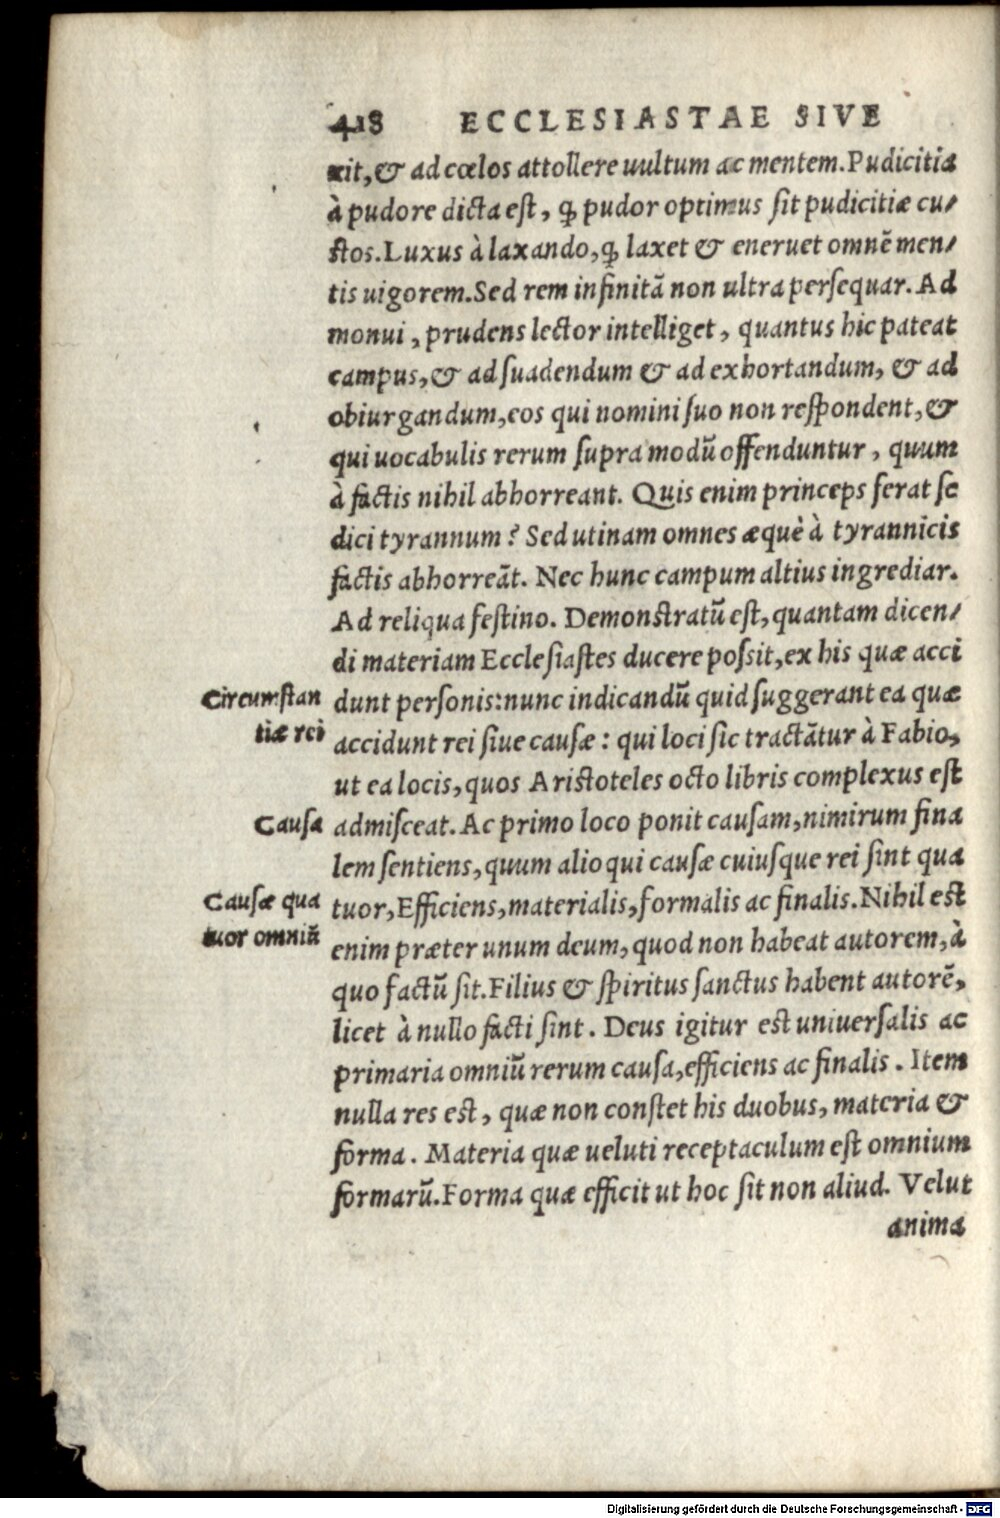 418 ECCLESIASTAE SIVE
xit, & ad cœlos attollere uultum ac mentem. Pudicitia
à pudore dicta est, ꝙ pudor optimus sit pudicitiæ cu/
stos. Luxus à laxando, ꝙ laxet & eneruet omnẽ men/
tis uigorem. Sed rem infinitã non ultra persequar. Ad
monui, prudens lector intelliget, quantus hic pateat
campus, & ad suadendum & ad exhortandum, & ad
obiurgandum, eos qui nomini suo non respondent, &
qui uocabulis rerum supra modũ offenduntur, quum
à factis nihil abhorreant. Quis enim princeps ferat se
dici tyrannum? Sed utinam omnes æquè à tyrannicis
factis abhorreãt. Nec hunc campum altius ingrediar.
Ad reliqua festino. Demonstratũ est, quantam dicen/
di materiam Ecclesiastes ducere possit, ex his quæ acci
Circumstan
tiæ rei
dunt personis: nunc indicandũ quid suggerant ea quæ
accidunt rei siue causæ: qui loci sic tractãtur à Fabio,
ut ea locis, quos Aristoteles octo libris complexus est
Causa
admisceat. Ac primo loco ponit causam, nimirum fina
lem sentiens, quum alioqui causæ cuiusque rei sint qua
Causæ qua
tuor omniũ
tuor, Efficiens, materialis, formalis ac finalis. Nihil est
enim præter unum deum, quod non habeat autorem, à
quo factũ sit. Filius & spiritus sanctus habent autorẽ,
licet à nullo facti sint. Deus igitur est uniuersalis ac
primaria omniũ rerum causa, efficiens ac finalis. Item
nulla res est, quæ non constet his duobus, materia &
forma. Materia quæ ueluti receptaculum est omnium
formarũ. Forma quæ efficit ut hoc sit non aliud. Velut
anima
Digitalisierung gefördert durch die Deutsche Forschungsgemeinschaft - DFG